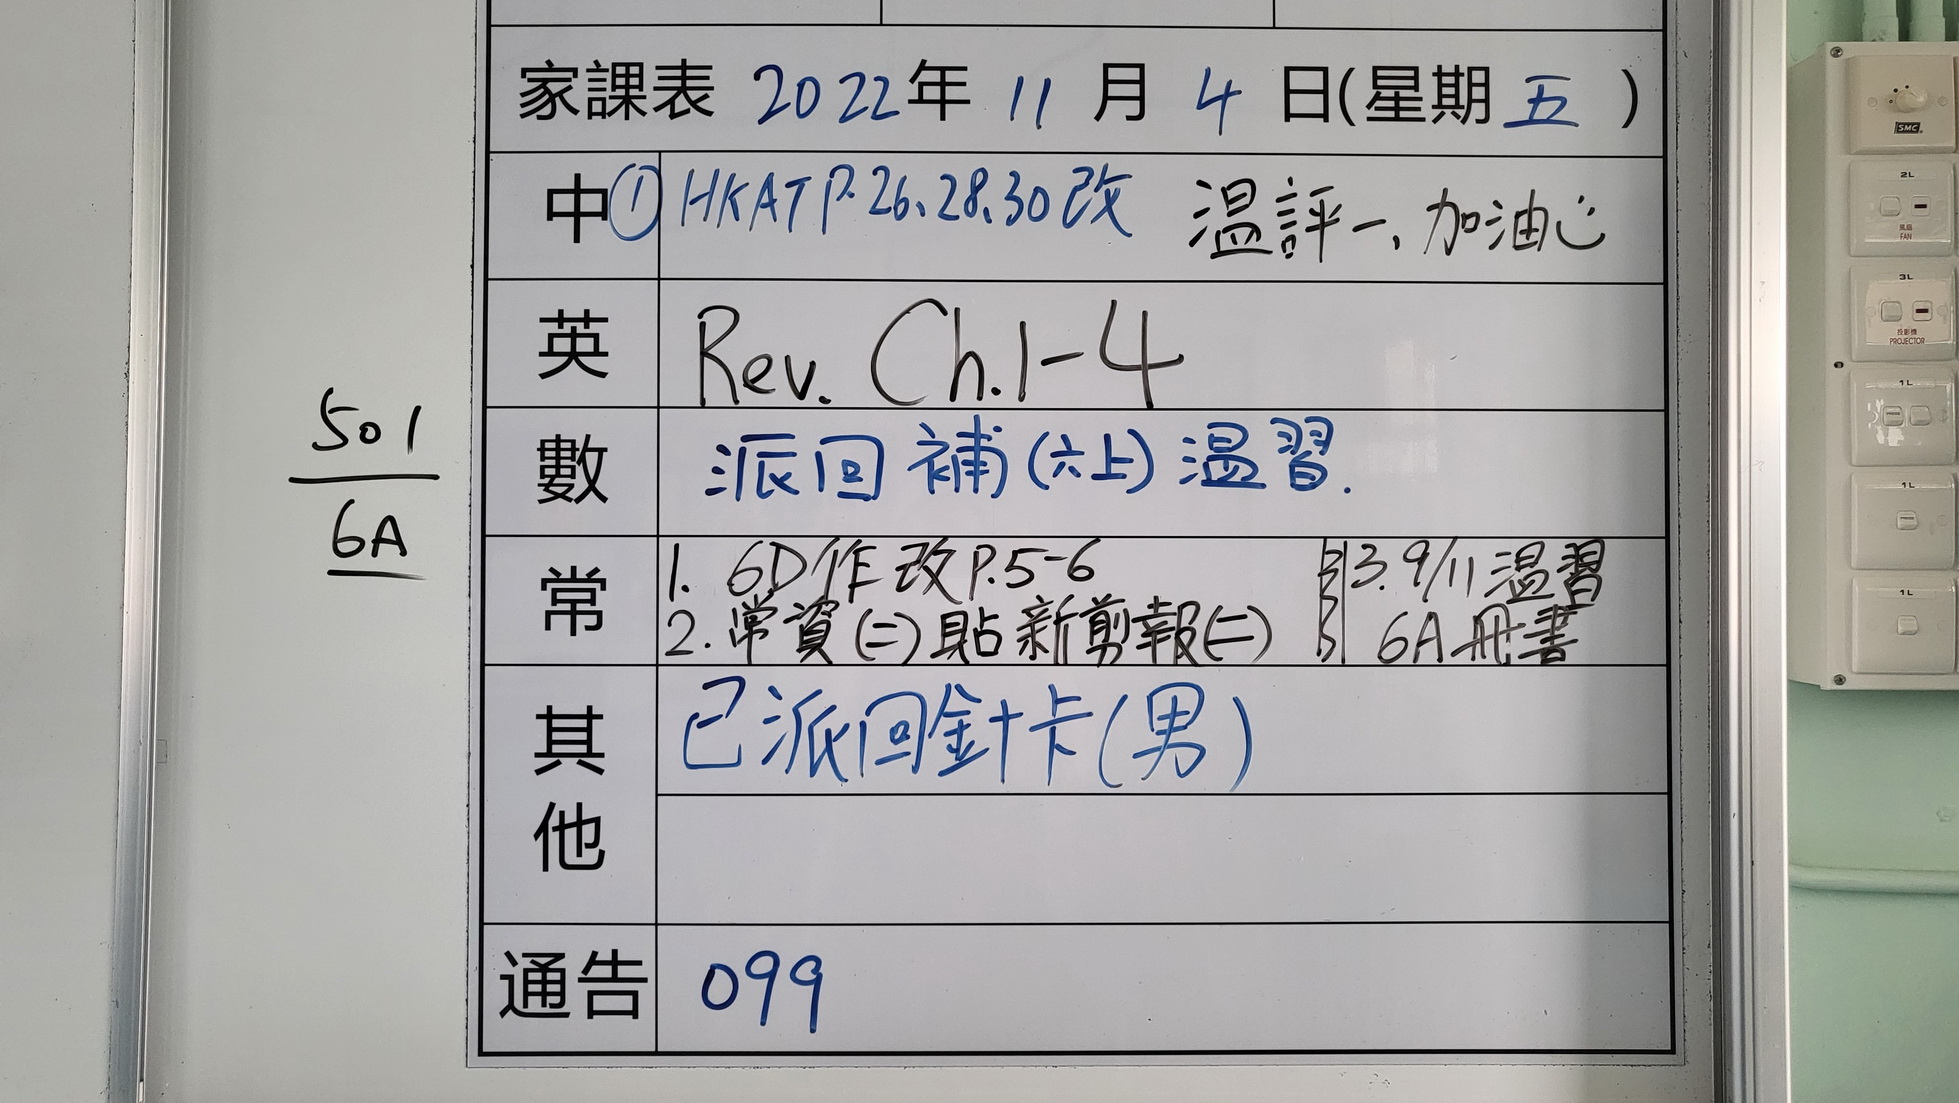 家課表 2022年 11 月 4 日(星期 五 )
中 ① HKAT P.26、28、30 改 溫評一, 加油
英 Rev. Ch.1-4
501
6A
數 派回 補(六上) 溫習.
常 1. 6D 作 改 P.5-6
2. 常資(二) 貼新剪報(二)
3. 9/11 溫習
6A 冊書
其他 已派回針卡(男)
通告 099
SMC
2L
風扇
FAN
3L
投影機
PROJECTOR
1L
1L
1L